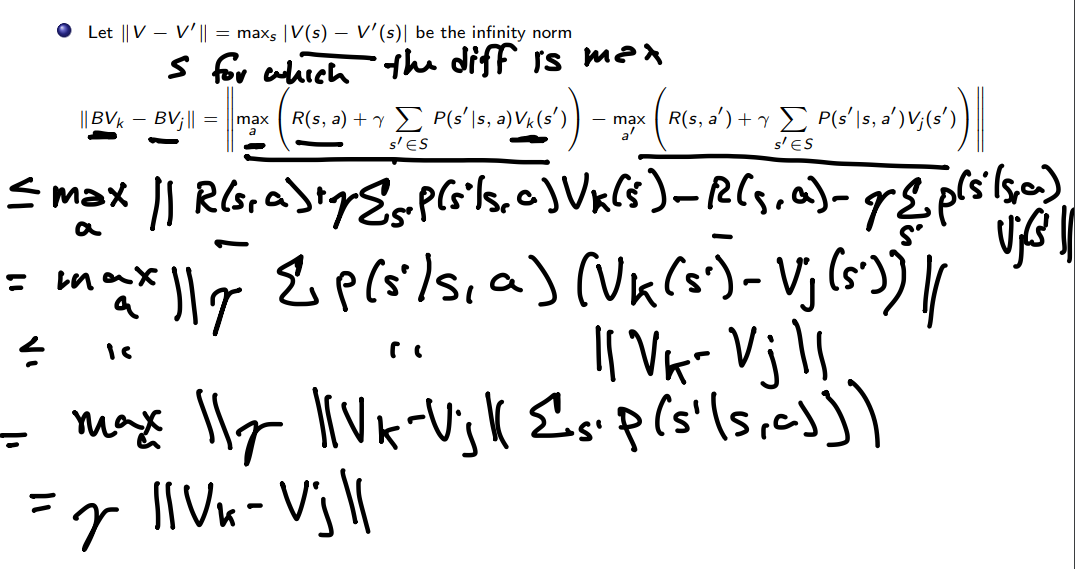 Let ‖V − V′‖ = maxₛ |V(s) − V′(s)| be the infinity norm
s for which the diff is max
‖BVₖ − BVⱼ‖ = ‖ max_a ( R(s, a) + γ ∑_{s′∈S} P(s′|s, a)Vₖ(s′) ) − max_{a′} ( R(s, a′) + γ ∑_{s′∈S} P(s′|s, a′)Vⱼ(s′) ) ‖
≤ max_a ‖ R(s, a) + γ ∑_{s'} p(s'|s, a) Vₖ(s') − R(s, a) − γ ∑_{s'} p(s'|s, a) Vⱼ(s') ‖
= max_a ‖ γ ∑ p(s'|s, a) (Vₖ(s') − Vⱼ(s')) ‖
≤ " " ‖Vₖ − Vⱼ‖
= max_a ‖ γ ‖Vₖ − Vⱼ‖ ∑_{s'} p(s'|s, a) ) ‖
= γ ‖Vₖ − Vⱼ‖